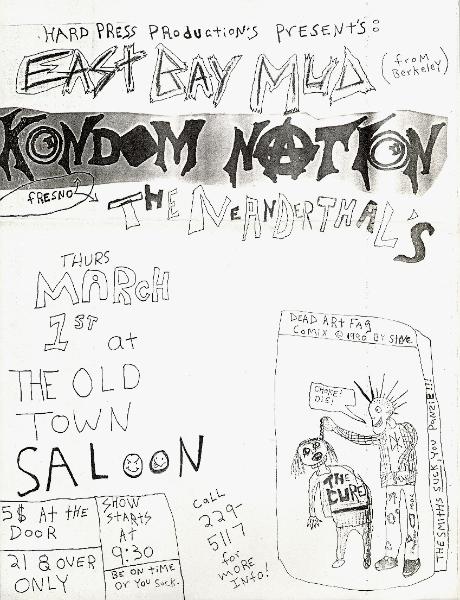 HARD PRESS PRODUCTION'S PRESENT'S:
EAST BAY MUD
(FROM
BERKELEY)
KONDOM NATION
FRESNO
THE NEANDERTHAL'S
THURS
MARCH
1ST at
THE OLD
TOWN
SALOON
5$ AT THE
DOOR
21 & OVER
ONLY
SHOW
STARTS
AT
9:30
BE ON TIME
OR YOU SUCK.
CALL
229-
5117
for
MORE
INFO!
DEAD ART FAG
COMIX © 1990 BY
CHOKE!
DIE!
THE
CURE
THE SMITHS SUCK, YOU PANZIE!!!